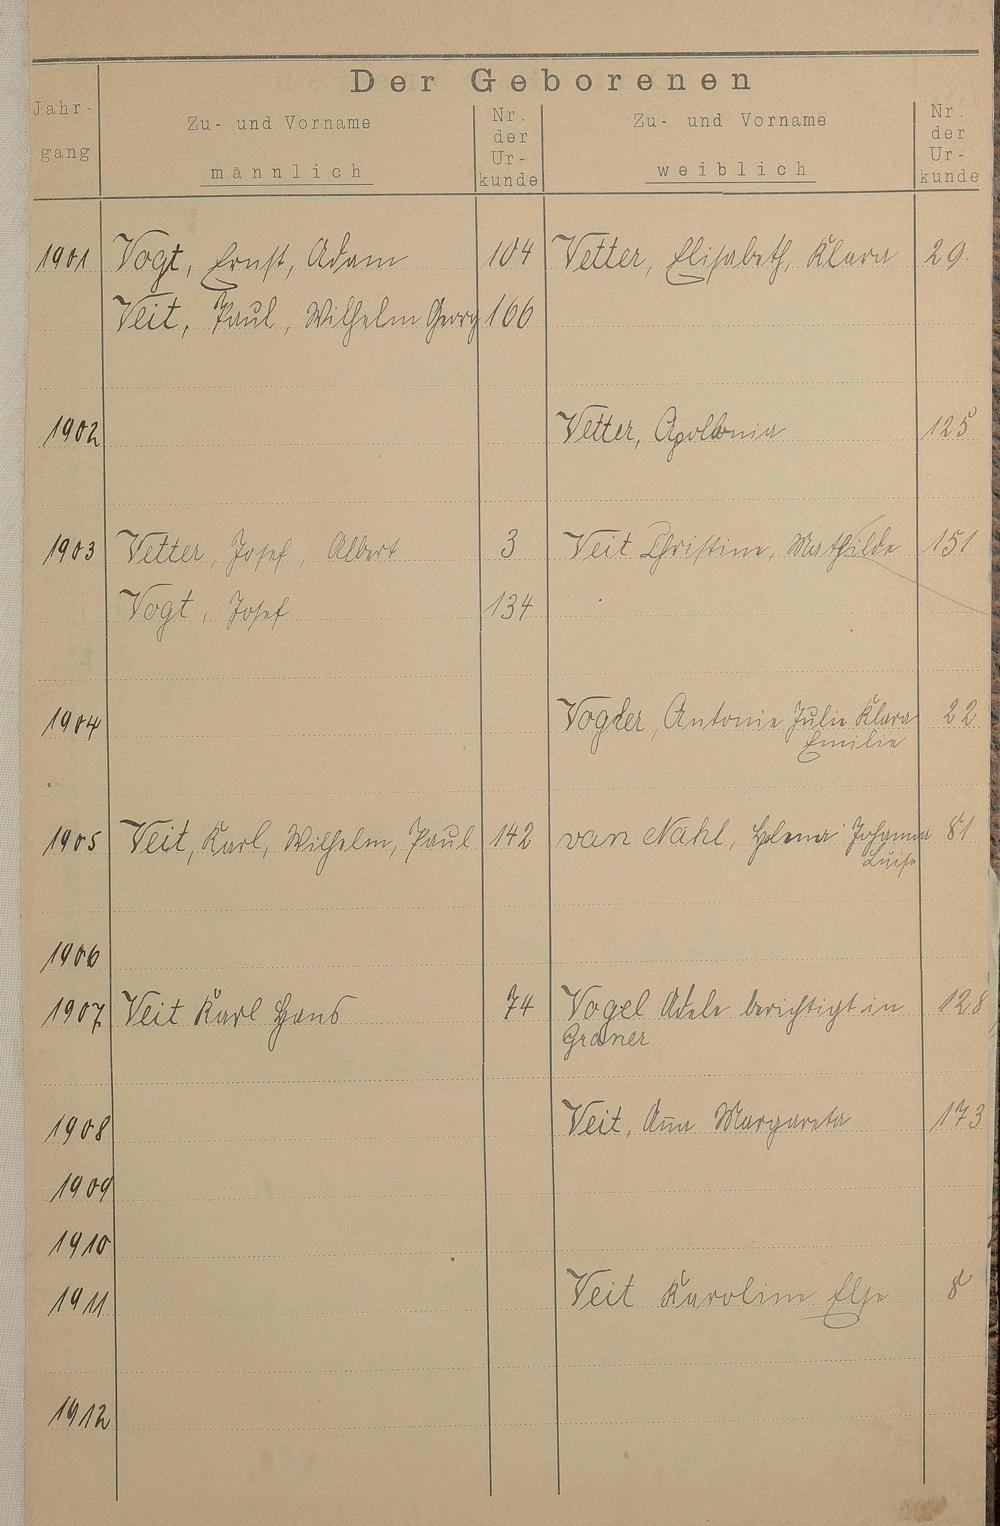 Der Geborenen
Jahr-
gang
Zu- und Vorname
männlich
Nr.
der
Ur-
kunde
Zu- und Vorname
weiblich
Nr.
der
Ur-
kunde
1901 Vogt, Ernst, Adam 104 Vetter, Elisabeth, Klara 29.
Veit, Paul, Wilhelm Georg 166
1902 Vetter, Apollonia 125
1903 Vetter, Josef, Albert 3 Veit Christine, Mathilde 151
Vogt, Josef 134
1904 Vogler, Antonie Julie Klara 22
Emilie
1905 Veit, Karl, Wilhelm, Paul 142 van Nahl, Helena Johanna 81
Luise
1906
1907 Veit Karl Hans 74 Vogel Adele berichtigt in 128
Graner
1908 Veit, Anna Margareta 173
1909
1910
1911 Veit Karoline Else 8
1912